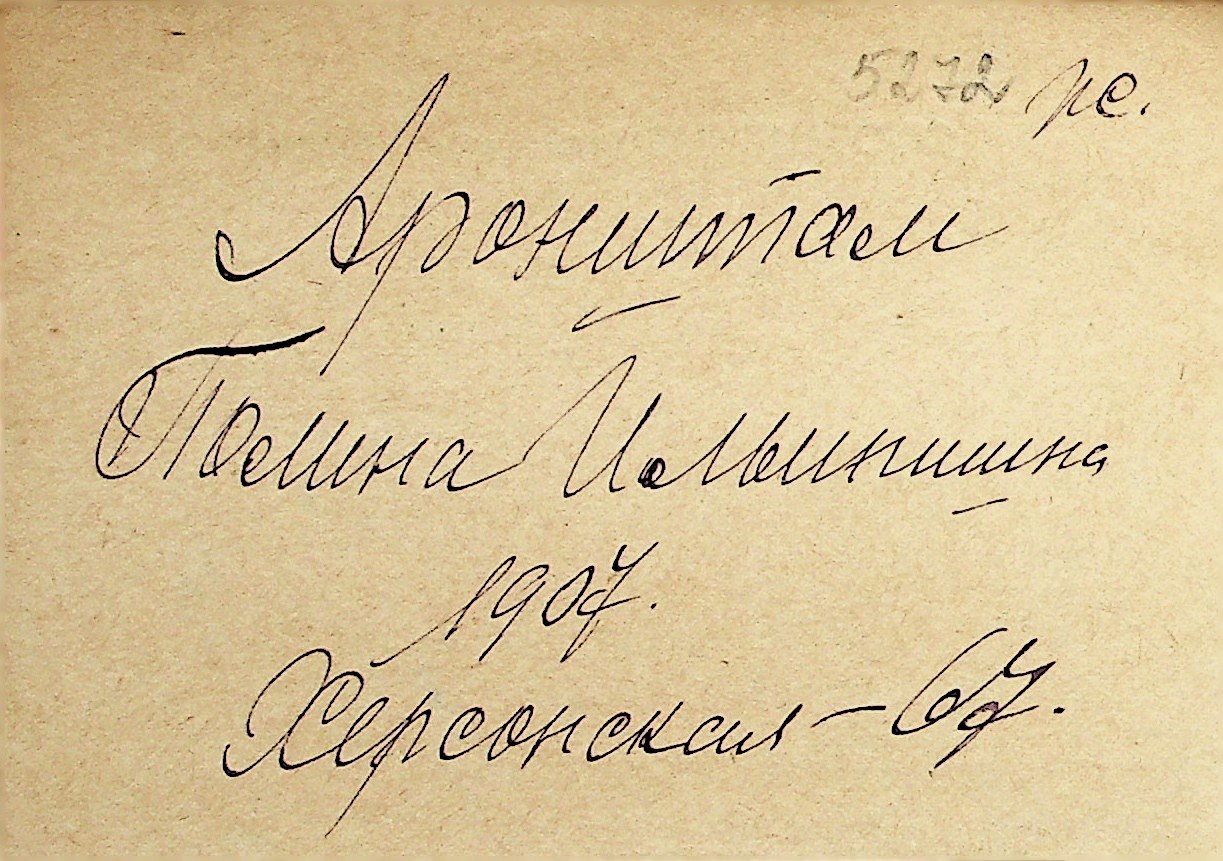 5272 рс.
Аронштам
Полина Ильинишна
1907.
Херсонская – 67.